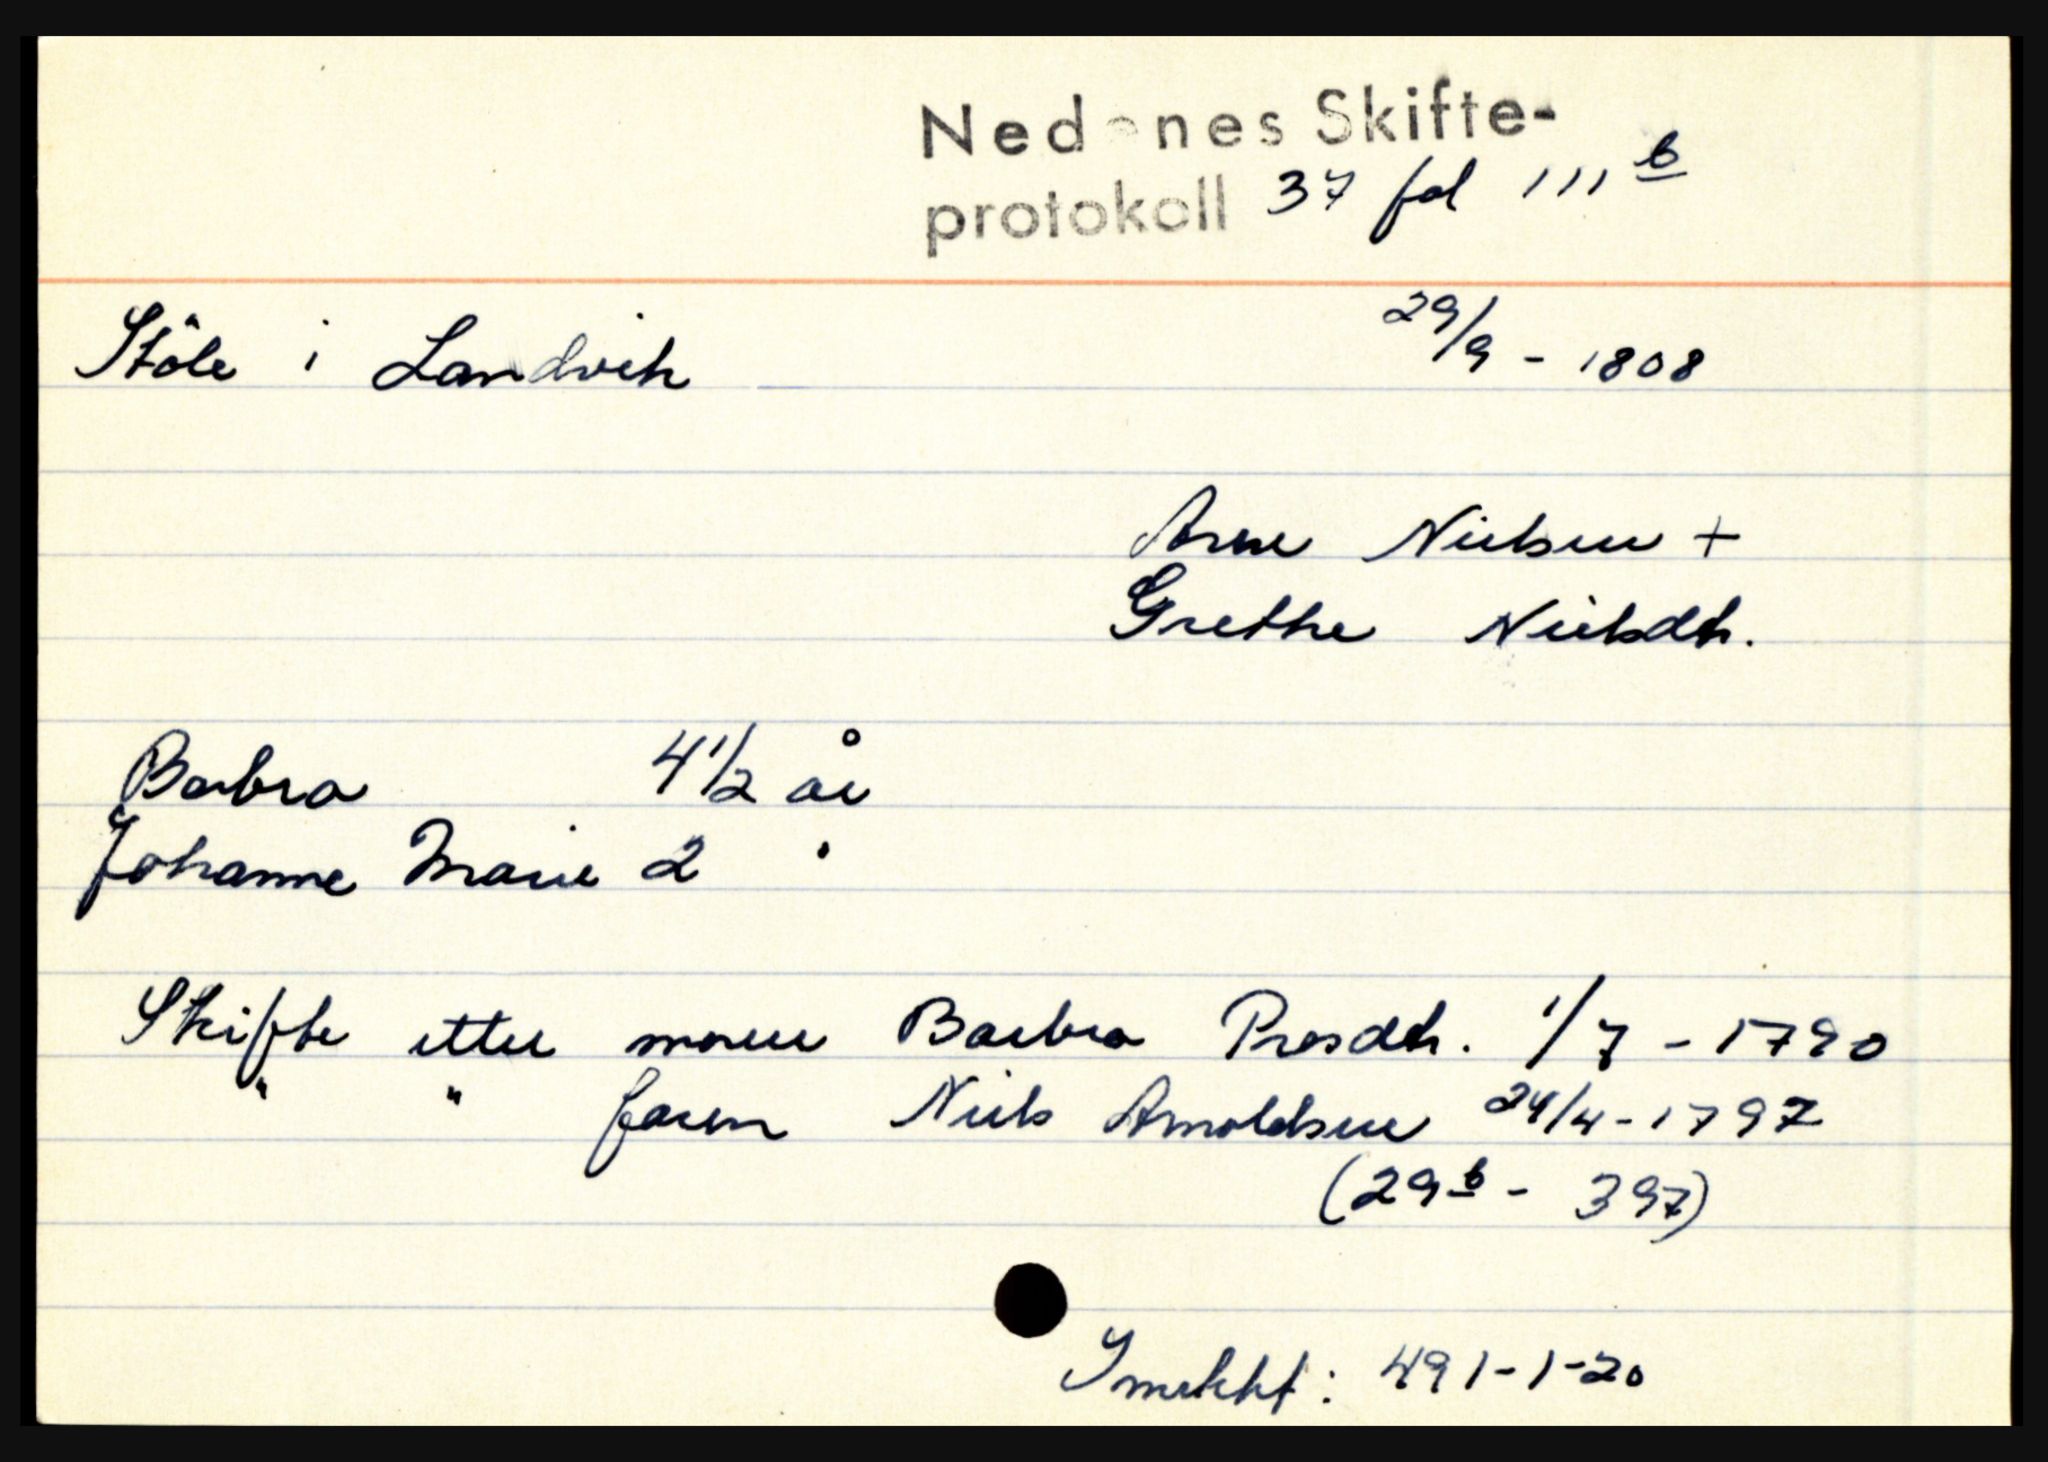 Nedenes Skifte-
protokoll 37 fol 111 b
Støle i Landvik 29/9 - 1808
Arne Nielsen +
Grethe Nielsdtr.
Barbra 4 1/2 år
Johanne Marie 2 "
Skifte etter moren Barbra Presdtr. 1/7 - 1790
" " faren Niels Arnoldsen 24/4 - 1797
(29 b - 397)
Inntekt: 491-1-20